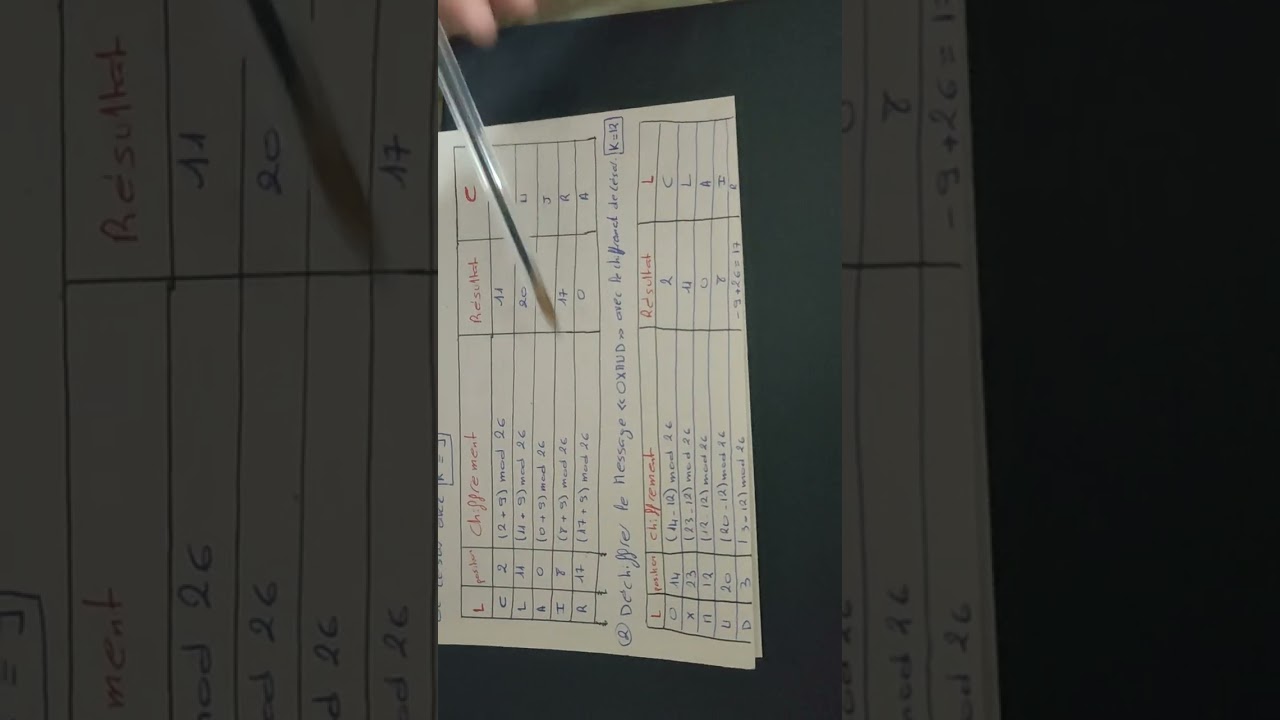 L position Chiffrement Résultat C
C 2 (2 + 9) mod 26 11
L 11 (11 + 9) mod 26 20 U
A 0 (0 + 9) mod 26 J
I 8 (8 + 9) mod 26 17 R
R 17 (17 + 9) mod 26 0 A
② Déchiffrer le Message << OXMUD >> avec le chiffrement de César. K=12
L position chiffrement Résultat L
O 14 (14 - 12) mod 26 2 C
X 23 (23 - 12) mod 26 11 L
M 12 (12 - 12) mod 26 0 A
U 20 (20 - 12) mod 26 8 I
D 3 (3 - 12) mod 26 -9 + 26 = 17 R